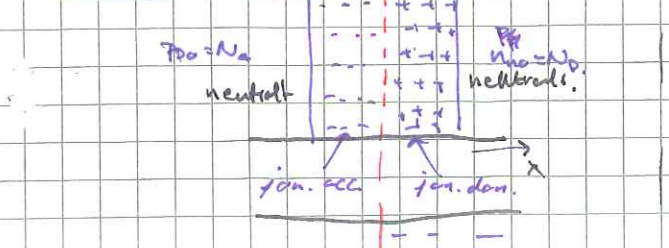 Ppo = Na
nno = ND.
neutralt
neutralt.
x
jon. acc.
jon. don.